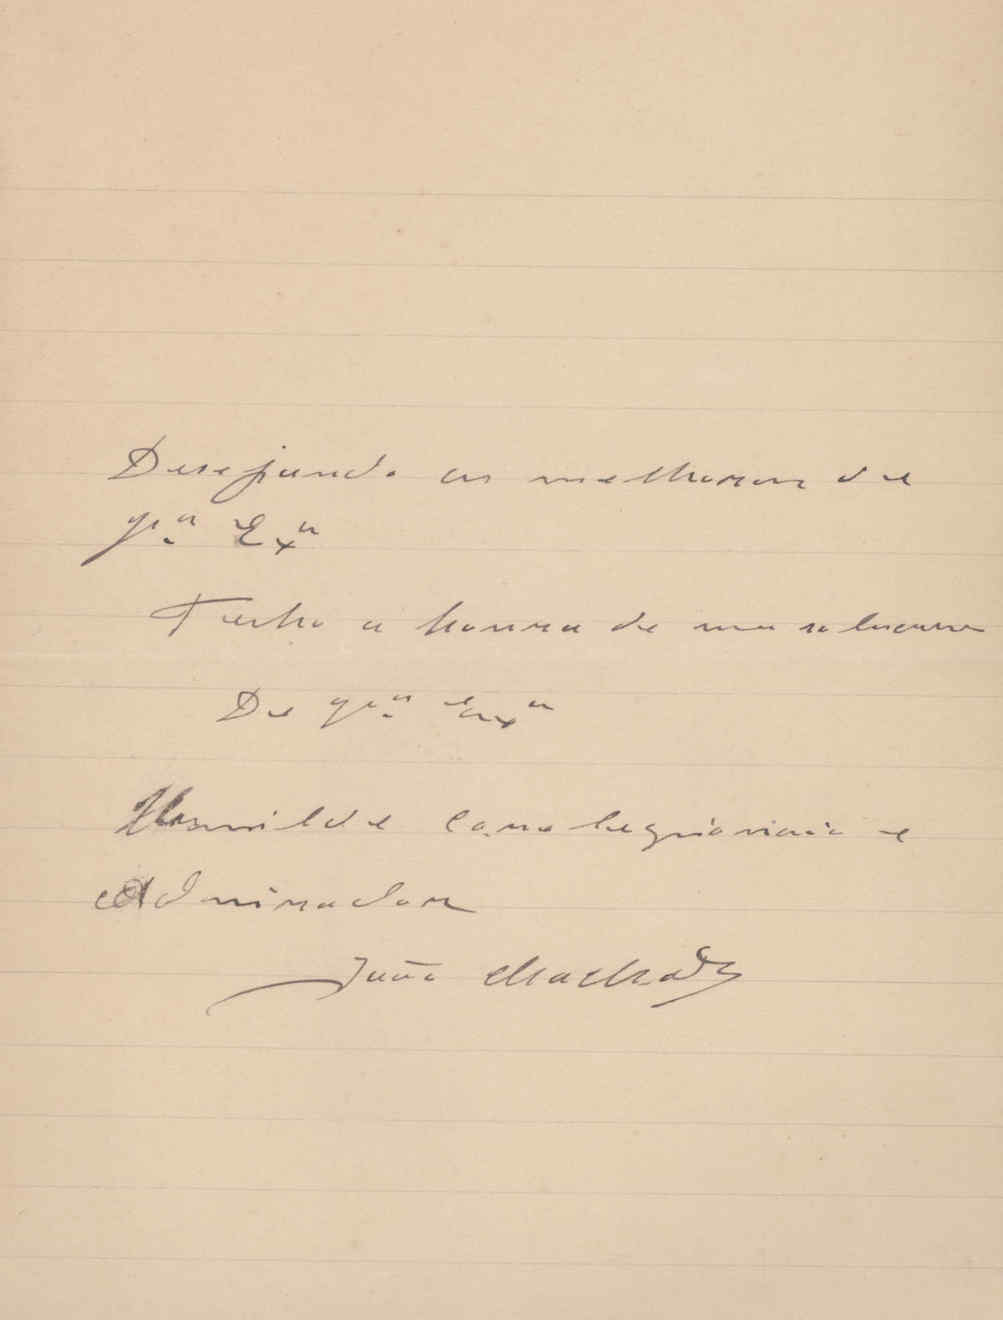 Desejando as melhoras de
V.ª Exª
Tenho a honra de me subscrever
De V.ª Exª
Humilde correligionario e
Admirador
João Machado